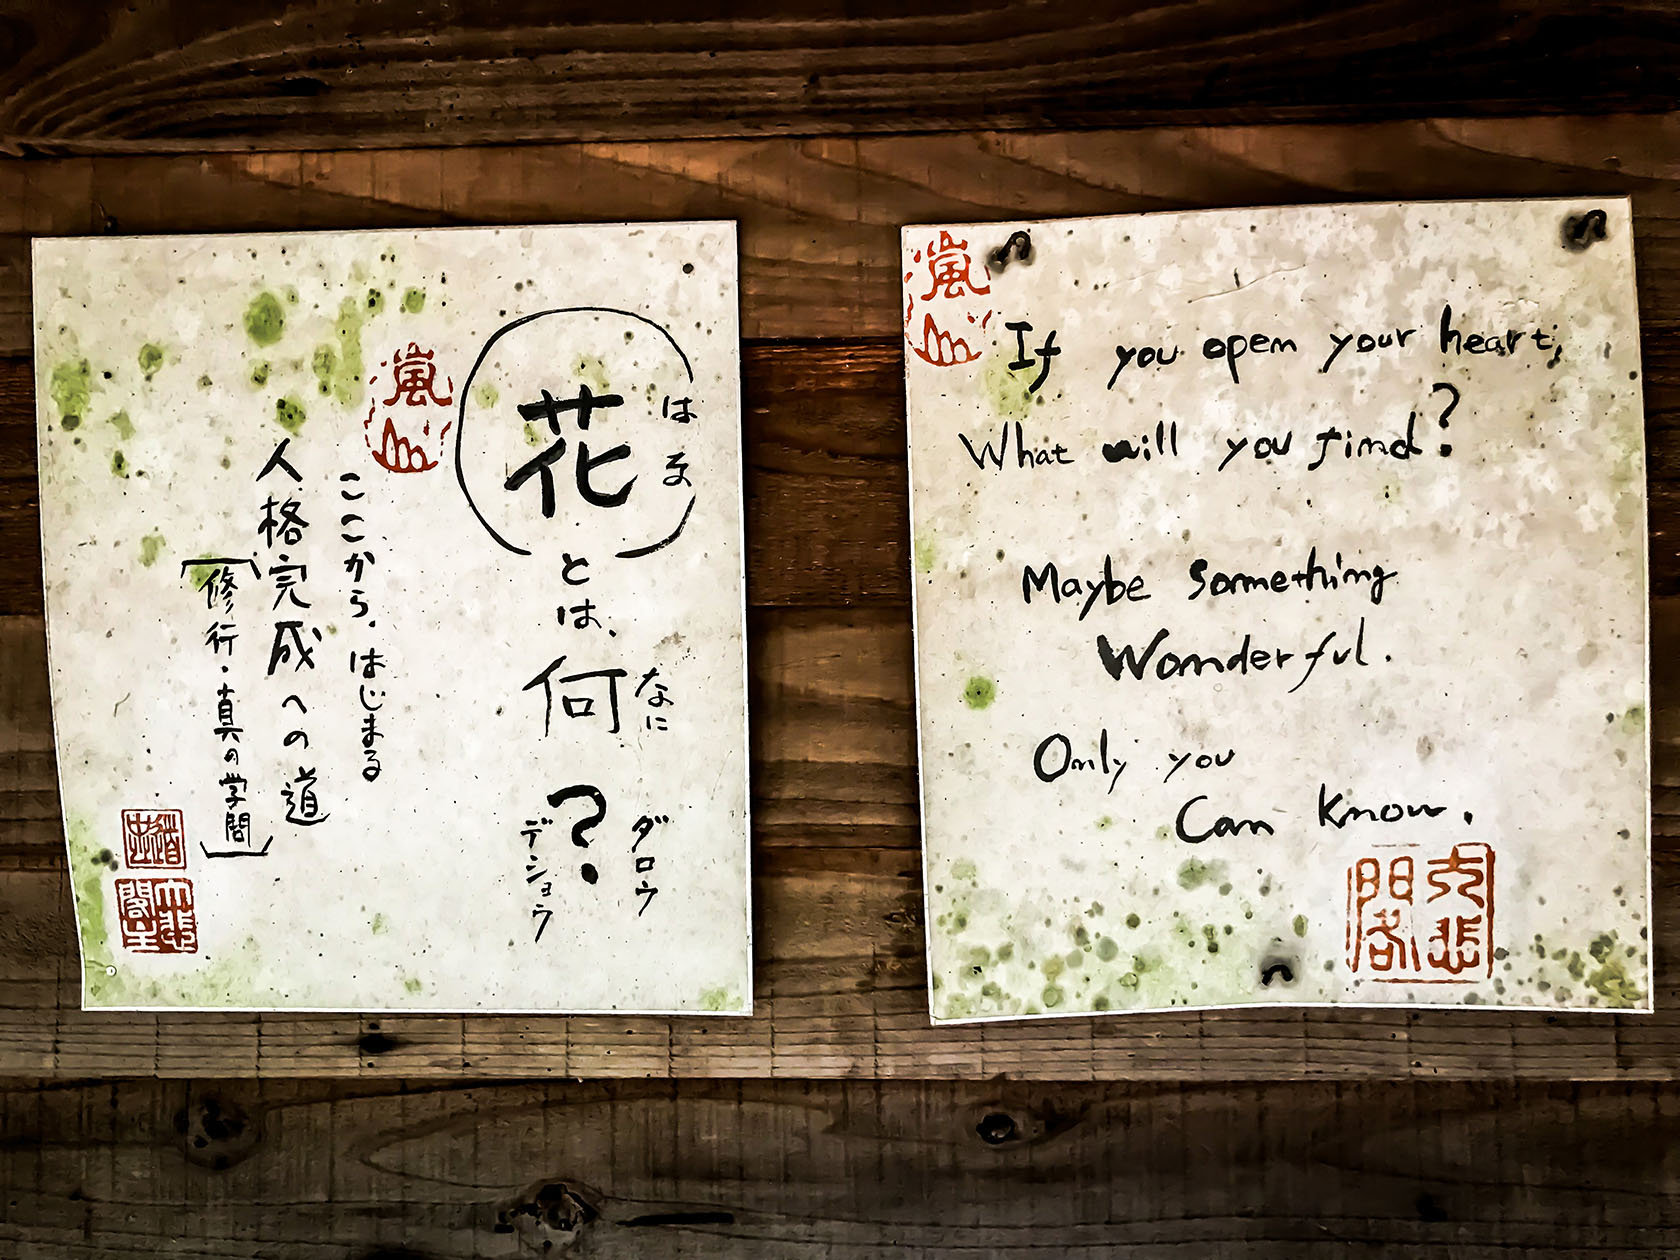 花とは、何?
なに
ダロウ
デショウ
嵐山
ここから、はじまる
人格完成への道
[修行・真の学問]
大悲閣主
嵐山
If you open your heart,
What will you find?
Maybe Something
Wonderful.
Only you
Can know.
大悲閣